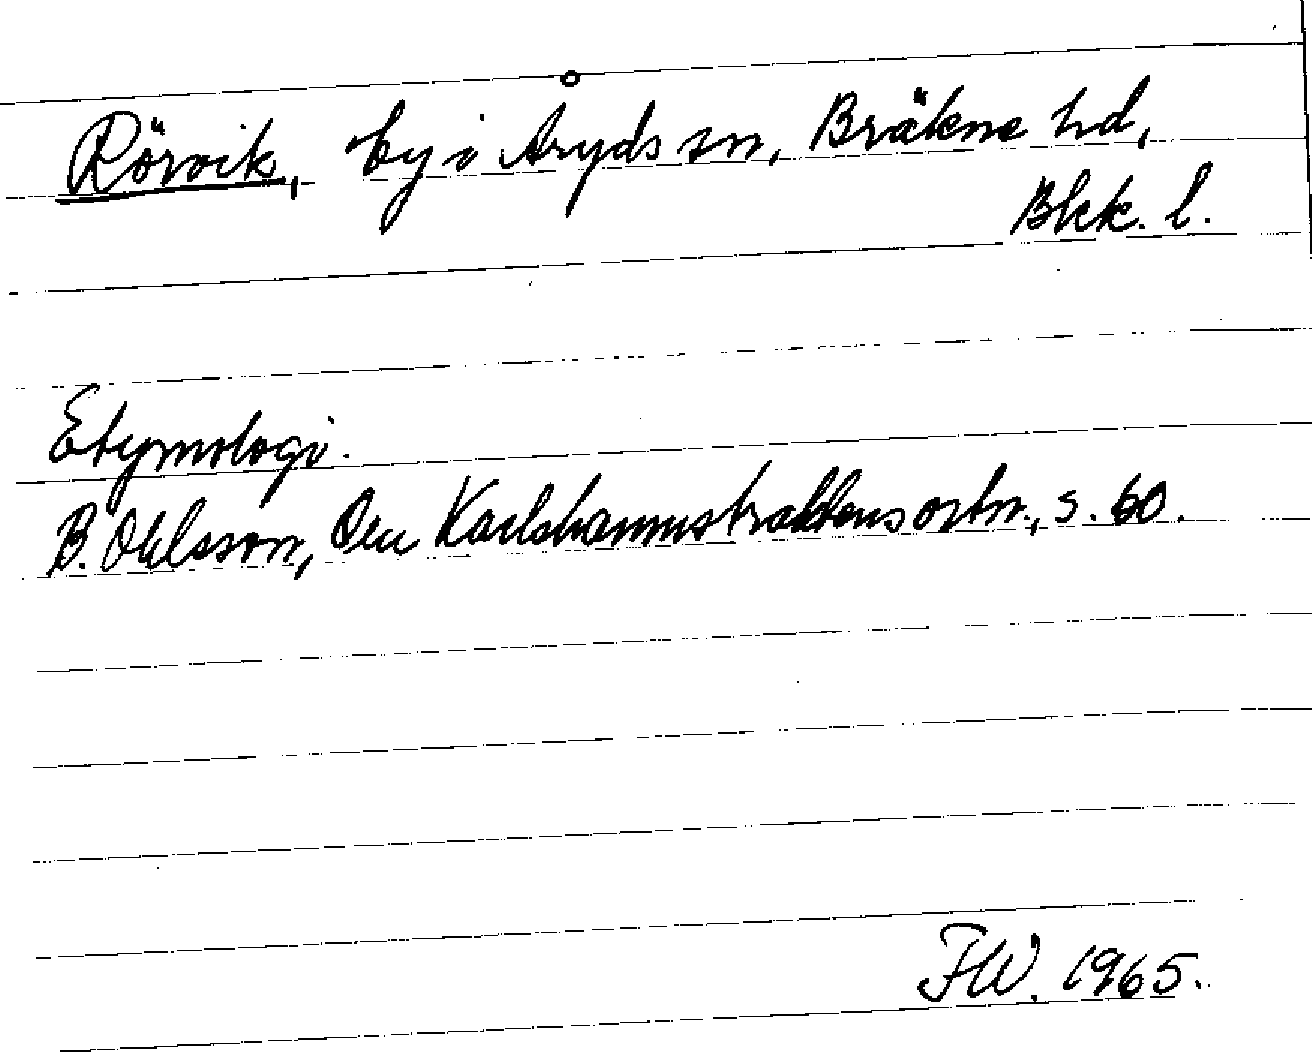 Rörvik, by i Åryds sn, Bräkne hd,
Blek. l.
Etymologi.
B. Ohlsson, Om Karlshamnstraktens ortn., s. 60.
FW. 1965.